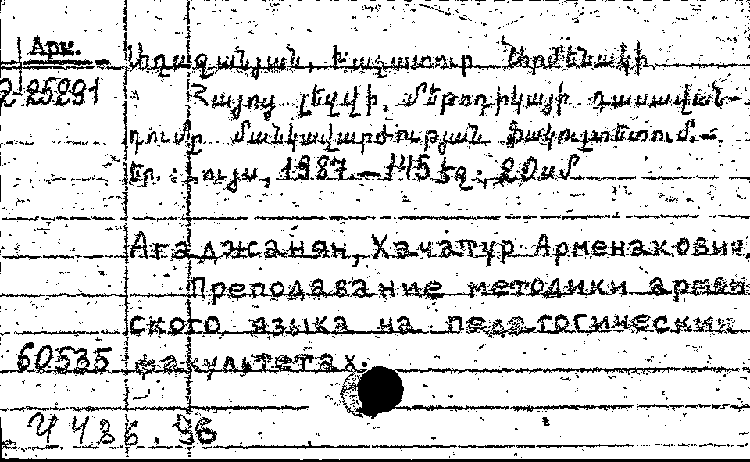 Արմ.
Աղաջանյան, Խաչատուր Արմենակի
25291
Հայոց լեզվի մեթոդիկայի դասավան-
դումը մանկավարժության ֆակուլտետում.-
Եր.: Լույս, 1987.-145 էջ; 20սմ
Агаджанян, Хачатур Арменакович.
Преподавание методики армян
ского языка на педагогических
60535 факультетах.
Ч 486.96